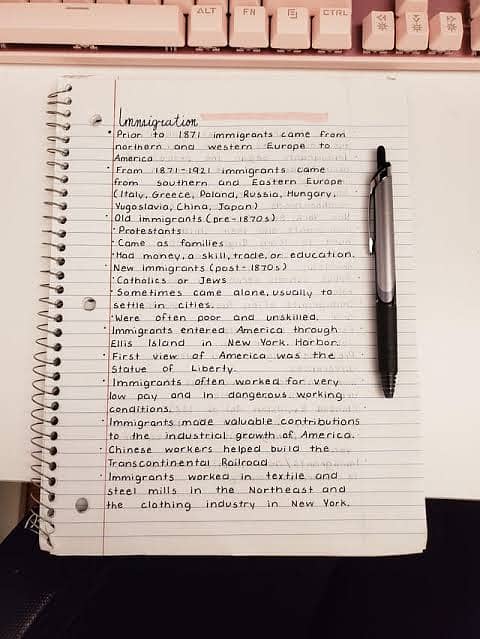 ALT
FN
CTRL
Immigration
· Prior to 1871 immigrants came from
northern and western Europe to
America
· From 1871-1921 immigrants came
from southern and Eastern Europe
(Italy, Greece, Poland, Russia, Hungary,
Yugoslavia, China, Japan)
· Old immigrants (pre-1870s)
· Protestants
· Came as families
· Had money, a skill, trade, or education.
· New immigrants (post-1870s)
· Catholics or Jews
· Sometimes came alone, usually to
settle in cities.
· Were often poor and unskilled.
· Immigrants entered America through
Ellis Island in New York Harbor.
· First view of America was the
Statue of Liberty.
· Immigrants often worked for very
low pay and in dangerous working
conditions.
· Immigrants made valuable contributions
to the industrial growth of America.
· Chinese workers helped build the
Transcontinental Railroad
· Immigrants worked in textile and
steel mills in the Northeast and
the clothing industry in New York.